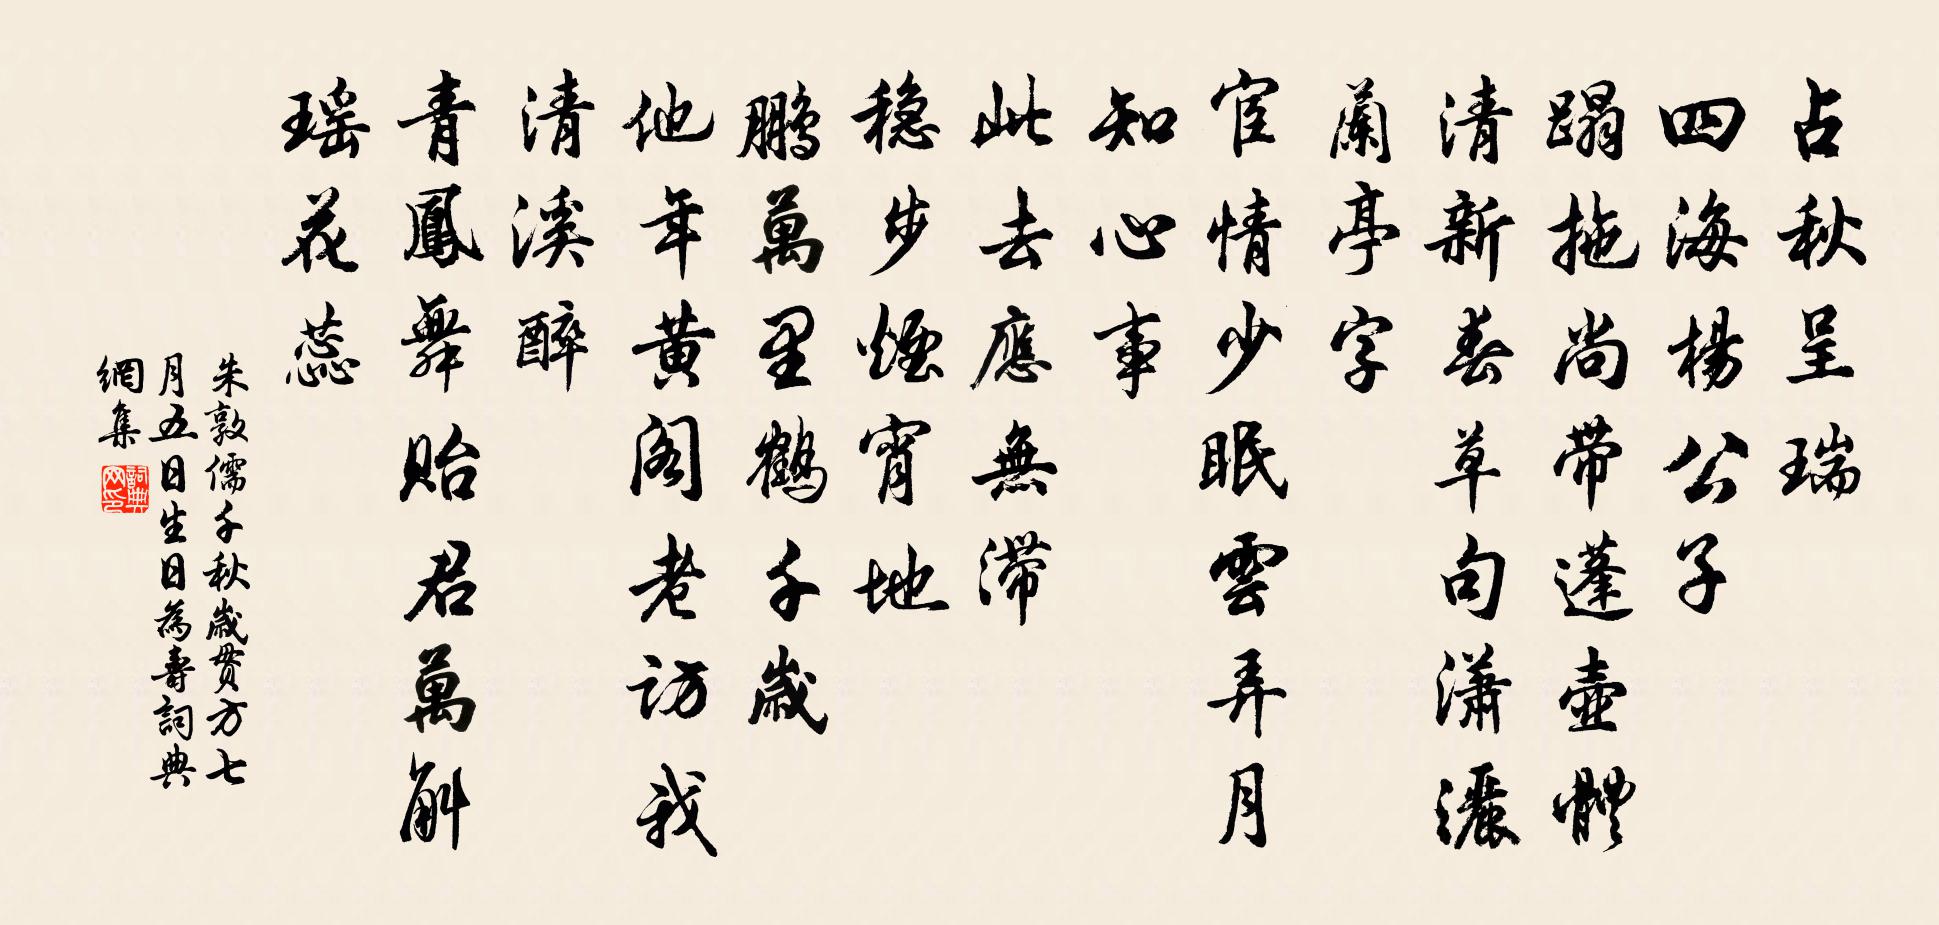 占秋呈瑞
四海楊公子
蹋拖尚带蓬壺體
清新春草句瀟灑
蘭亭字
宦情少眠雲弄月
知心事
此去應無滯
穏步煙宵地
鹏萬里鶴千歲
他年黄阁老访我
清溪醉
青鳳舞贻君萬斛
瑶花蕊
朱敦儒千秋歲贯方七
月五日生日為壽詞典
網集
詞典
网印